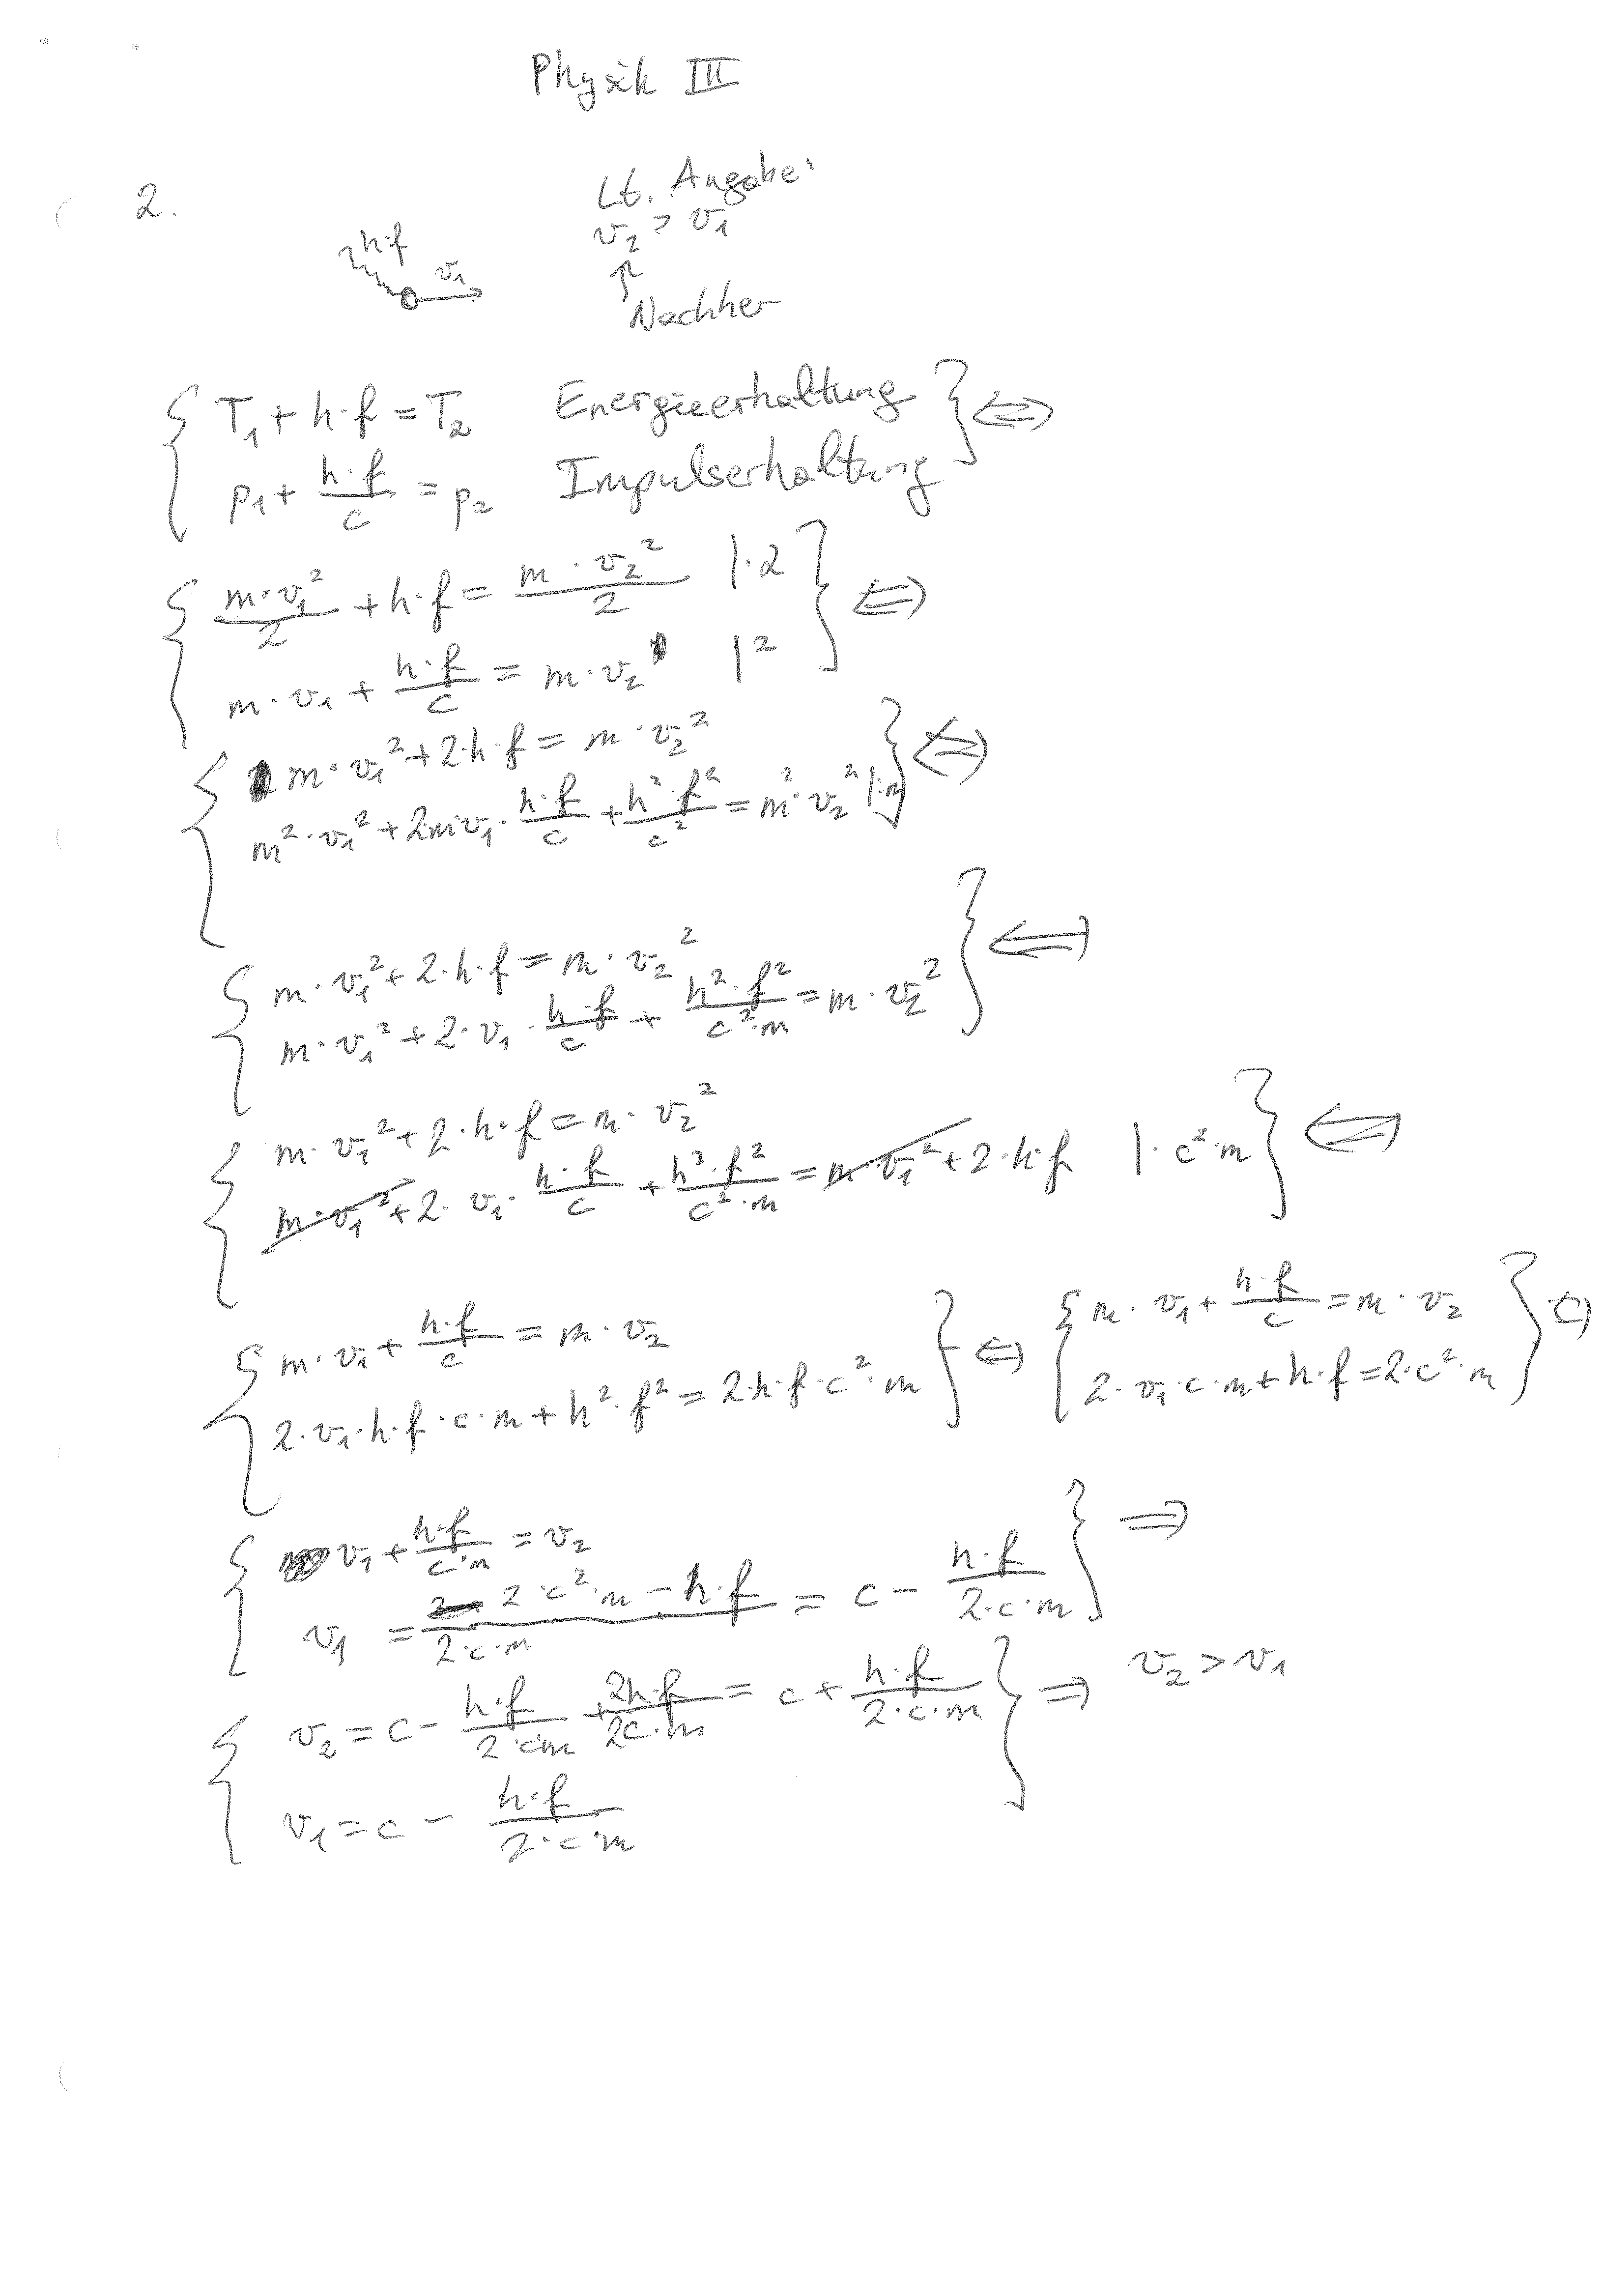 Physik III
2.
Lt. Angabe:
v₂ > v₁
↑
Nachher
h·f
v₁
{ T₁ + h·f = T₂ Energieerhaltung } ⇔
{ p₁ + h·f/c = p₂ Impulserhaltung
{ m·v₁²/2 + h·f = m·v₂²/2 |·2 } ⇔
{ m·v₁ + h·f/c = m·v₂ |²
{ m·v₁² + 2·h·f = m·v₂² } ⇔
{ m²·v₁² + 2·m·v₁·h·f/c + h²·f²/c² = m²·v₂² |:m
{ m·v₁² + 2·h·f = m·v₂² } ⇔
{ m·v₁² + 2·v₁·h·f/c + h²·f²/(c²·m) = m·v₂²
{ m·v₁² + 2·h·f = m·v₂² } ⇔
{ m·v₁² + 2·v₁·h·f/c + h²·f²/(c²·m) = m·v₁² + 2·h·f |·c²·m
{ m·v₁ + h·f/c = m·v₂ } ⇔ { m·v₁ + h·f/c = m·v₂ } ⇔
{ 2·v₁·h·f·c·m + h²·f² = 2·h·f·c²·m } { 2·v₁·c·m + h·f = 2·c²·m }
{ v₁ + h·f/(c·m) = v₂ } ⇒
{ v₁ = (2·c²·m − h·f)/(2·c·m) = c − h·f/(2·c·m)
{ v₂ = c − h·f/(2·cm) + 2h·f/(2c·m) = c + h·f/(2·c·m) } ⇒ v₂ > v₁
{ v₁ = c − h·f/(2·c·m)